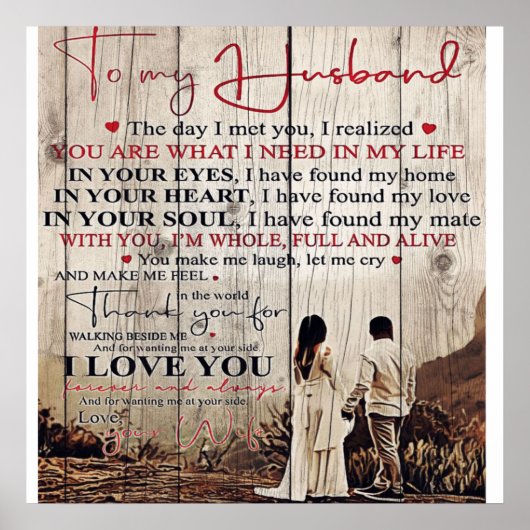 To my Husband
The day I met you, I realized
YOU ARE WHAT I NEED IN MY LIFE
IN YOUR EYES, I have found my home
IN YOUR HEART, I have found my love
IN YOUR SOUL, I have found my mate
WITH YOU, I'M WHOLE, FULL AND ALIVE
You make me laugh, let me cry
AND MAKE ME FEEL
in the world
Thank you for
WALKING BESIDE ME
And for wanting me at your side.
I LOVE YOU
forever and always.
And for wanting me at your side.
Love,
your Wife